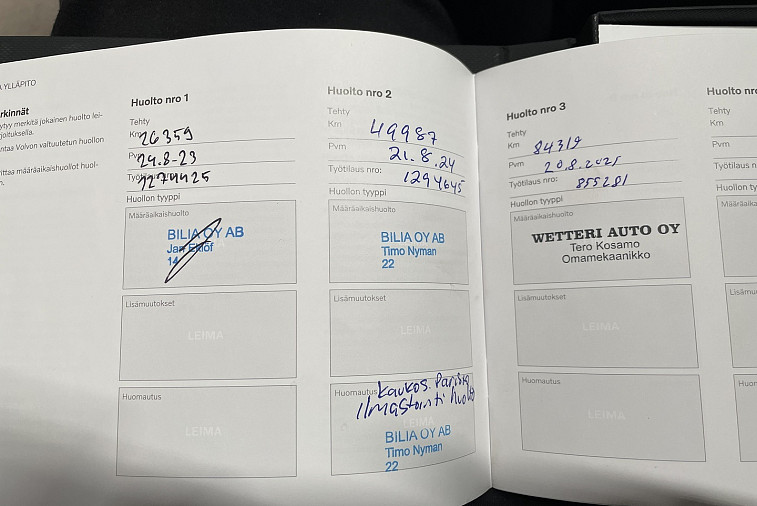 YLLÄPITO
rkinnät
ytyy merkitä jokainen huolto lei-
joituksella.
ntaa Volvon valtuutetun huollon
rittaa määräaikaishuollot huol-
n.
Huolto nro 1
Tehty
Km 26359
Pvm 24.8-23
1279425
Huollon tyyppi
Määräaikaishuolto
BILIA OY AB
Jan Eklöf
14
Lisämuutokset
LEIMA
Huomautus
LEIMA
Huolto nro 2
Tehty
Km 49987
Pvm 21.8.24
Työtilaus nro: 1294645
Huollon tyyppi
Määräaikaishuolto
BILIA OY AB
Timo Nyman
22
Lisämuutokset
LEIMA
Huomautus Kaukos. Paristo
Ilmastointi huolto
LEIMA
BILIA OY AB
Timo Nyman
22
Huolto nro 3
Tehty
Km 84319
Pvm 20.8.2025
Työtilaus nro: 855281
Huollon tyyppi
Määräaikaishuolto
WETTERI AUTO OY
Tero Kosamo
Omamekaanikko
Lisämuutokset
LEIMA
Huomautus
LEIMA
Huolto nro
Tehty
Km
Pvm
Työtilaus n
Huollon ty
Määräaika
Lisämu
Huom